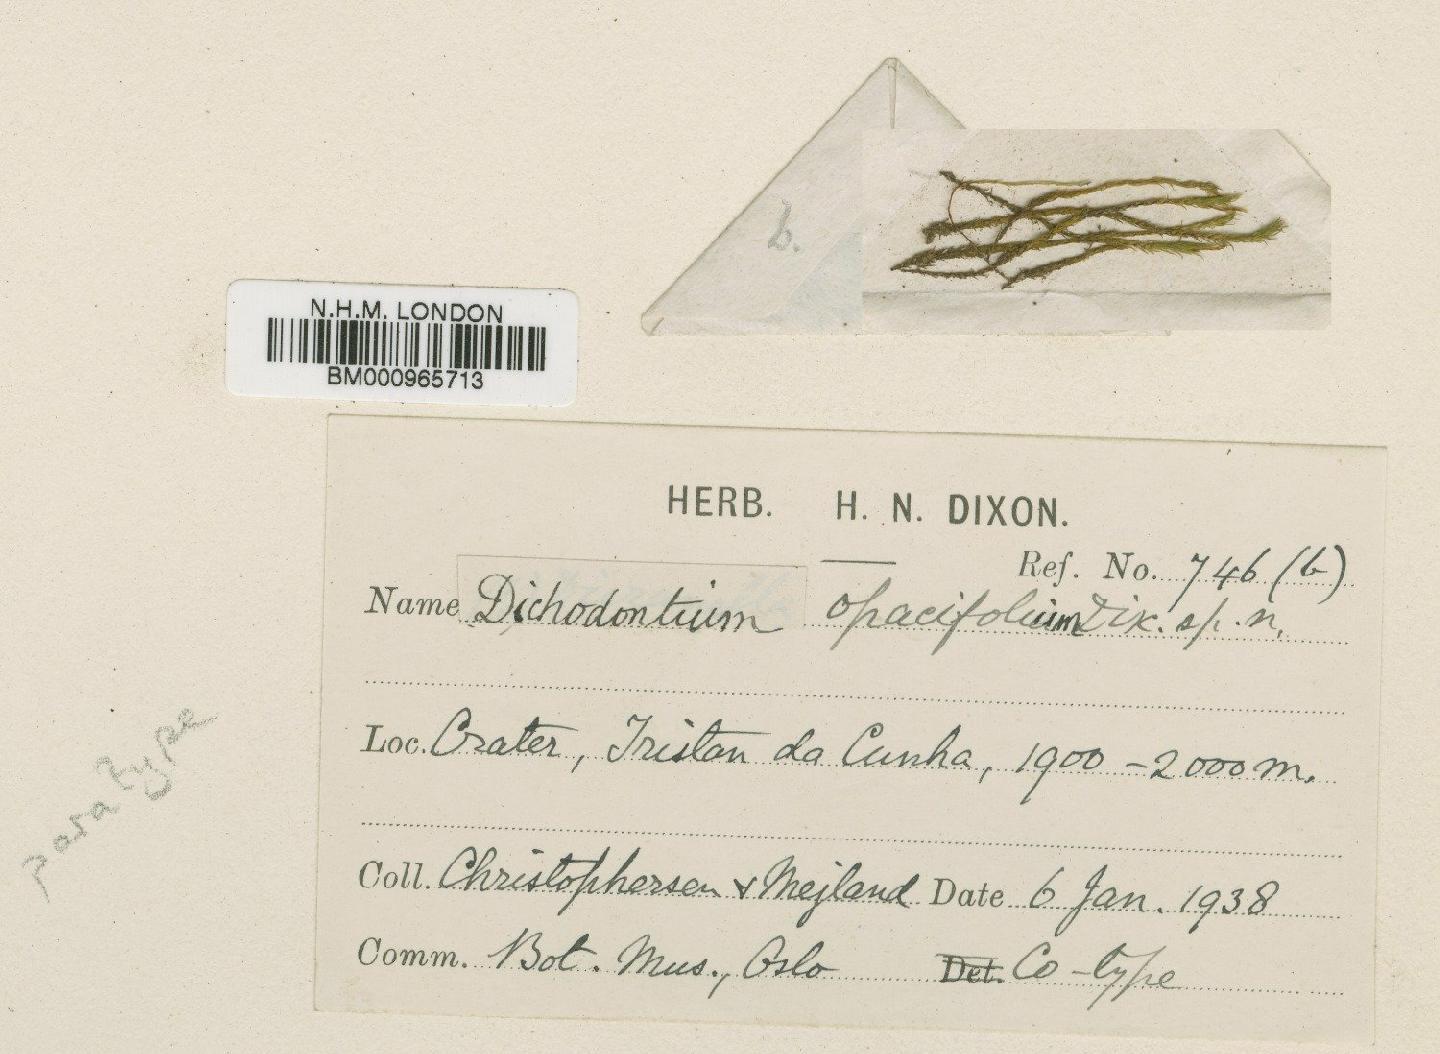 b.
N.H.M. LONDON
BM000965713
HERB. H. N. DIXON.
Ref. No. 746 (b)
Name Dichodontium opacifolium Dix. sp. n.
Loc. Crater, Tristan da Cunha, 1900 - 2000 m.
Coll. Christophersen & Mejland Date 6 Jan. 1938
Comm. Bot. Mus., Oslo Det. Co-type
paratype